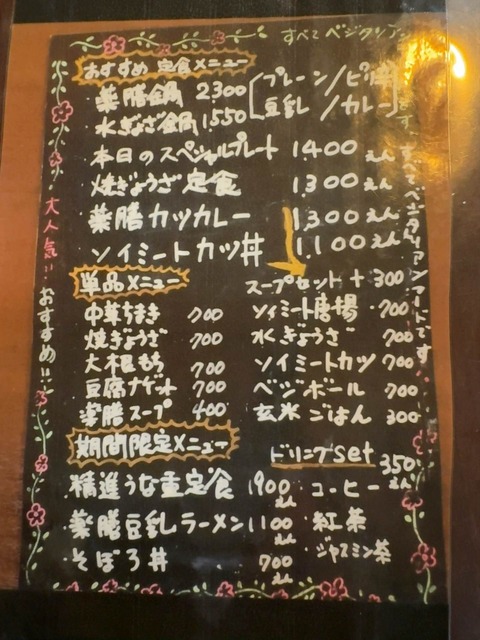 すべてベジタリアン
おすすめ 定食メニュー
薬膳鍋 2300
水ぎょうざ鍋 1,550
プレーン/ピ辛
豆乳/カレー
本日のスペシャルプレート 1400えん
焼ぎょうざ定食 1300えん
薬膳カツカレー 1,300えん
ソイミートカツ丼 1,100えん
スープセット+300
単品メニュー
中華ちまき 700
焼ぎょうざ 700
大根もち 700
豆腐ナゲット 700
薬膳スープ 400
ソイミート唐揚 700
水ぎょうざ 700
ソイミートカツ 700
ベジボール 700
玄米ごはん 300
期間限定メニュー
精進うな重定食 1900えん
薬膳豆乳ラーメン 1100えん
そぼろ丼 700えん
ドリンクset 350えん
コーヒー
紅茶
ジャスミン茶
大人気!! おすすめ!!
すべてベジタリアンフードです